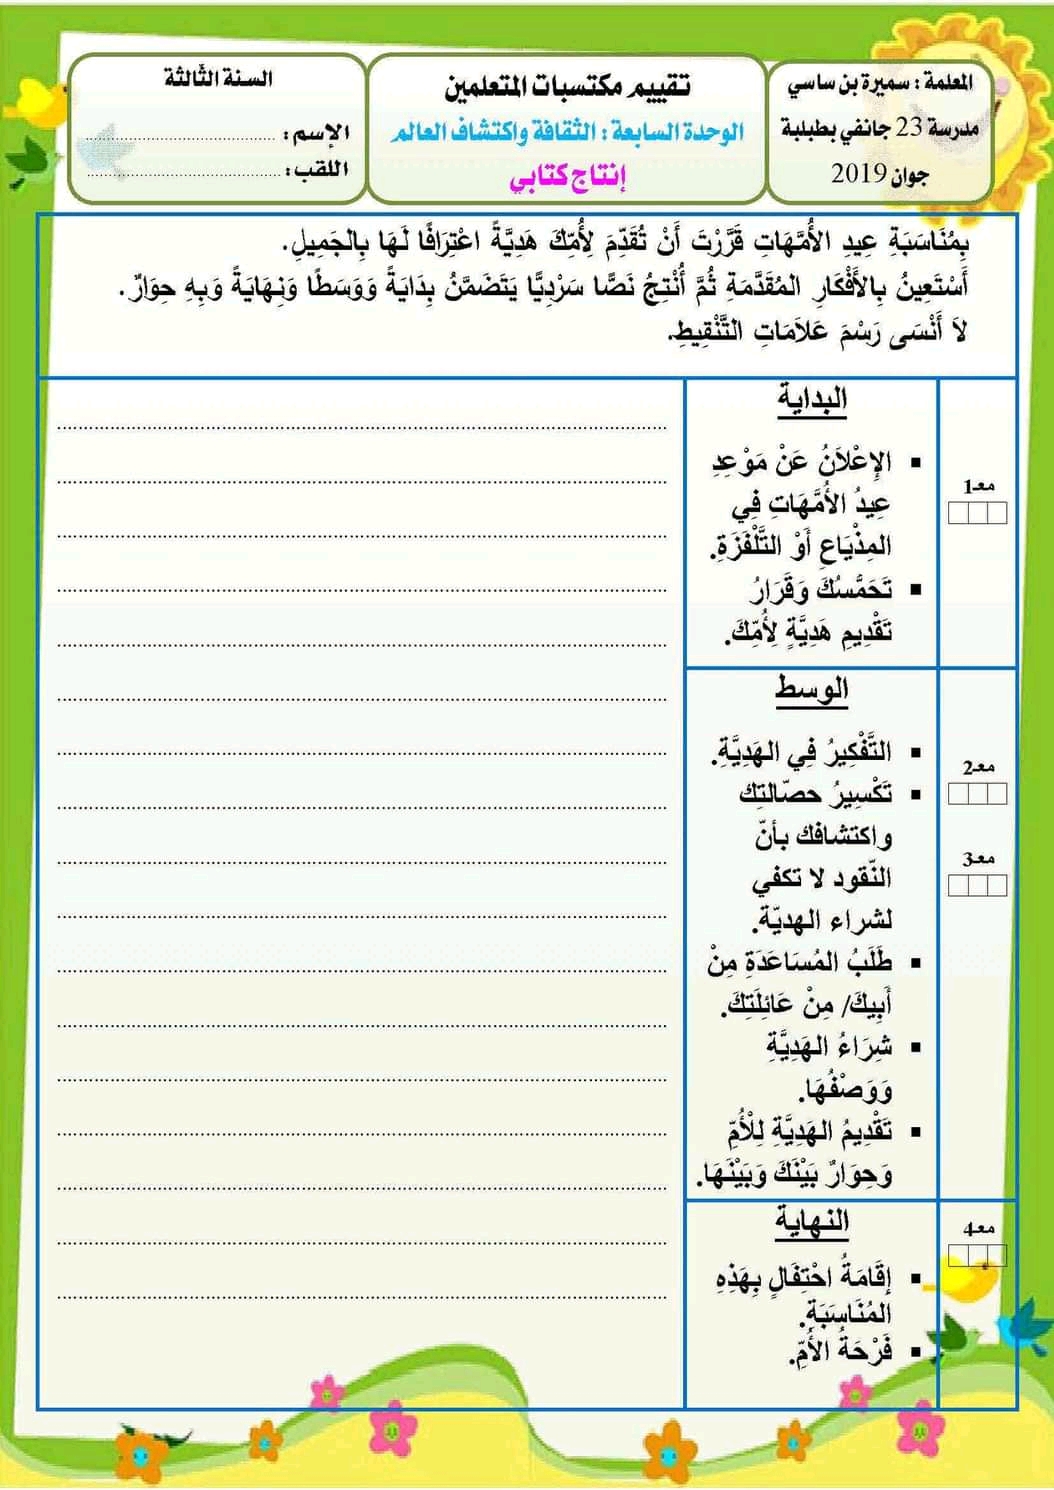 المعلمة : سميرة بن ساسي
مدرسة 23 جانفي بطبلبة
جوان 2019
تقييم مكتسبات المتعلمين
الوحدة السابعة : الثقافة واكتشاف العالم
إنتاج كتابي
السنة الثّالثة
الإسم :
اللقب :
بِمُنَاسَبَةِ عِيدِ الأُمَّهَاتِ قَرَّرْتَ أَنْ تُقَدِّمَ لِأُمِّكَ هَدِيَّةً اعْتِرَافًا لَهَا بِالجَمِيلِ.
أَسْتَعِينُ بِالأَفْكَارِ المُقَدَّمَةِ ثُمَّ أُنْتِجُ نَصًّا سَرْدِيًّا يَتَضَمَّنُ بِدَايَةً وَوَسَطًا وَنِهَايَةً وَبِهِ حِوَارٌ.
لاَ أَنْسَى رَسْمَ عَلاَمَاتِ التَّنْقِيطِ.
معـ1
البداية
▪ الإِعْلاَنُ عَنْ مَوْعِدِ
عِيدُ الأُمَّهَاتِ فِي
المِذْيَاعِ أَوْ التَّلْفَزَةِ.
▪ تَحَمَّسُكَ وَقَرَارُ
تَقْدِيمِ هَدِيَّةٍ لِأُمِّكَ.
معـ2
معـ3
الوسط
▪ التَّفْكِيرُ فِي الهَدِيَّةِ.
▪ تَكْسِيرُ حصّالتِك
واكتشافك بأنّ
النّقود لا تكفي
لشراء الهديّة.
▪ طَلَبُ المُسَاعَدَةِ مِنْ
أَبِيكَ/ مِنْ عَائِلَتِكَ.
▪ شِرَاءُ الهَدِيَّةِ
وَوَصْفُهَا.
▪ تَقْدِيمُ الهَدِيَّةِ لِلْأُمِّ
وَحِوَارٌ بَيْنَكَ وَبَيْنَهَا.
معـ4
النهاية
▪ إِقَامَةُ احْتِفَالٍ بِهَذِهِ
المُنَاسَبَةِ.
▪ فَرْحَةُ الأُمِّ.